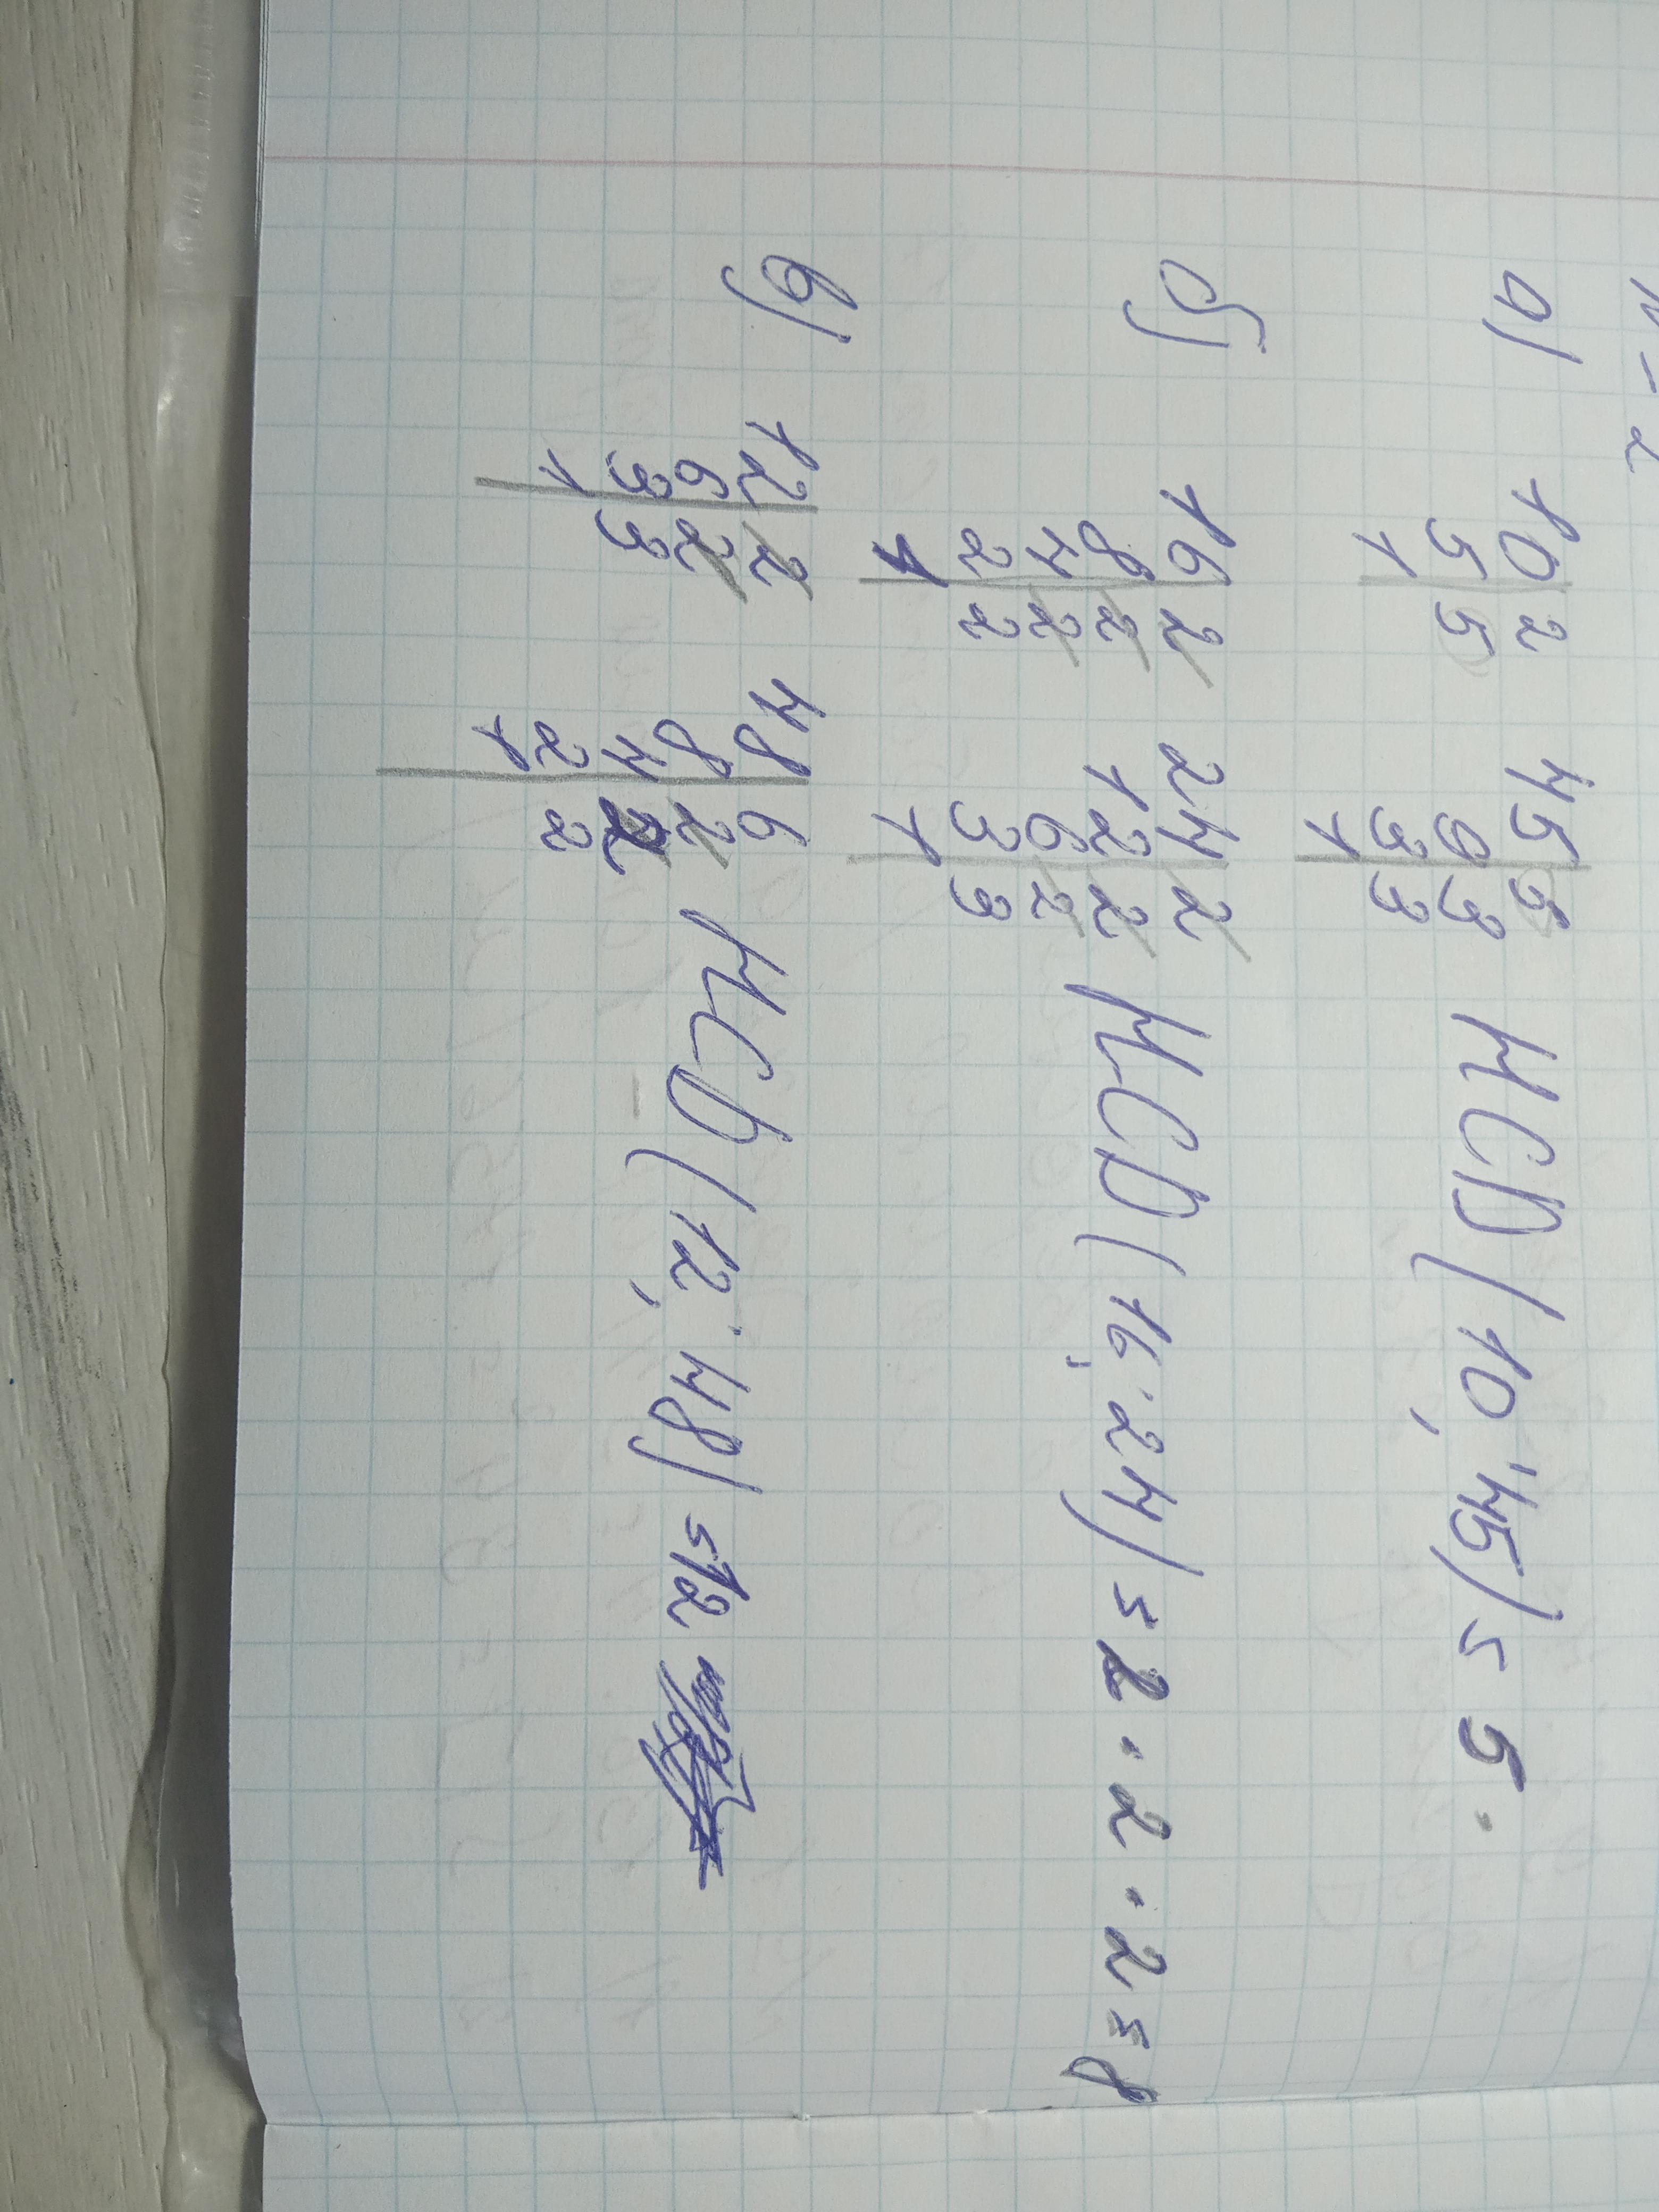 а) 10 2 45 5 НСD (10; 45) = 5.
5 5 9 3
1 3 3
1
б) 16 2 24 2 НСD (16; 24) = 2 · 2 · 2 = 8
8 2 12 2
4 2 6 2
2 2 3 3
1 1
в) 12 2 48 6 НСD (12; 48) = 12
6 2 8 2
3 3 4 2
1 2 2
1